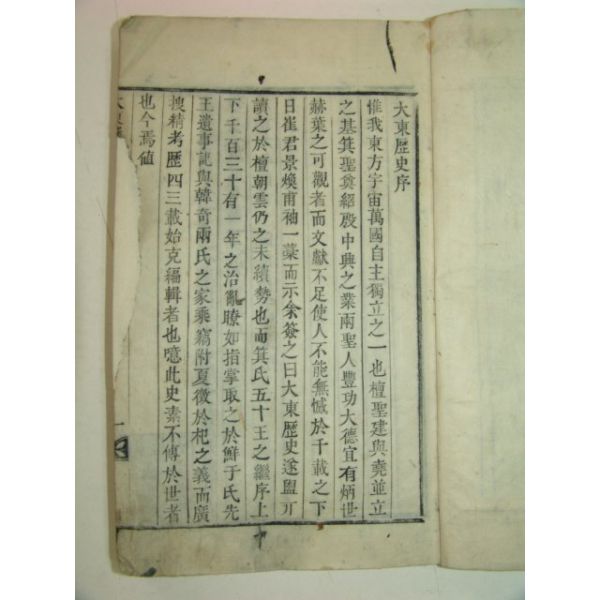 大東歷史序
惟我東方宇宙萬國自主獨立之一也檀聖建與堯並立
之基箕聖奠紹殷中興之業兩聖人豐功大德宜有炳世
赫葉之可觀者而文獻不足使人不能無憾於千載之下
日崔君景煥甫袖一藁而示余簽之曰大東歷史遂盥丌
讀之於檀朝雲仍之未績勢也而箕氏五十王之繼序上
下千百三十有一年之治亂瞭如指掌取之於鮮于氏先
王遺事記與韓奇兩氏之家乘竊附夏徵於杞之義而廣
搜精考歷四三載始克編輯者也噫此史素不傳於世者
也今焉値
大東